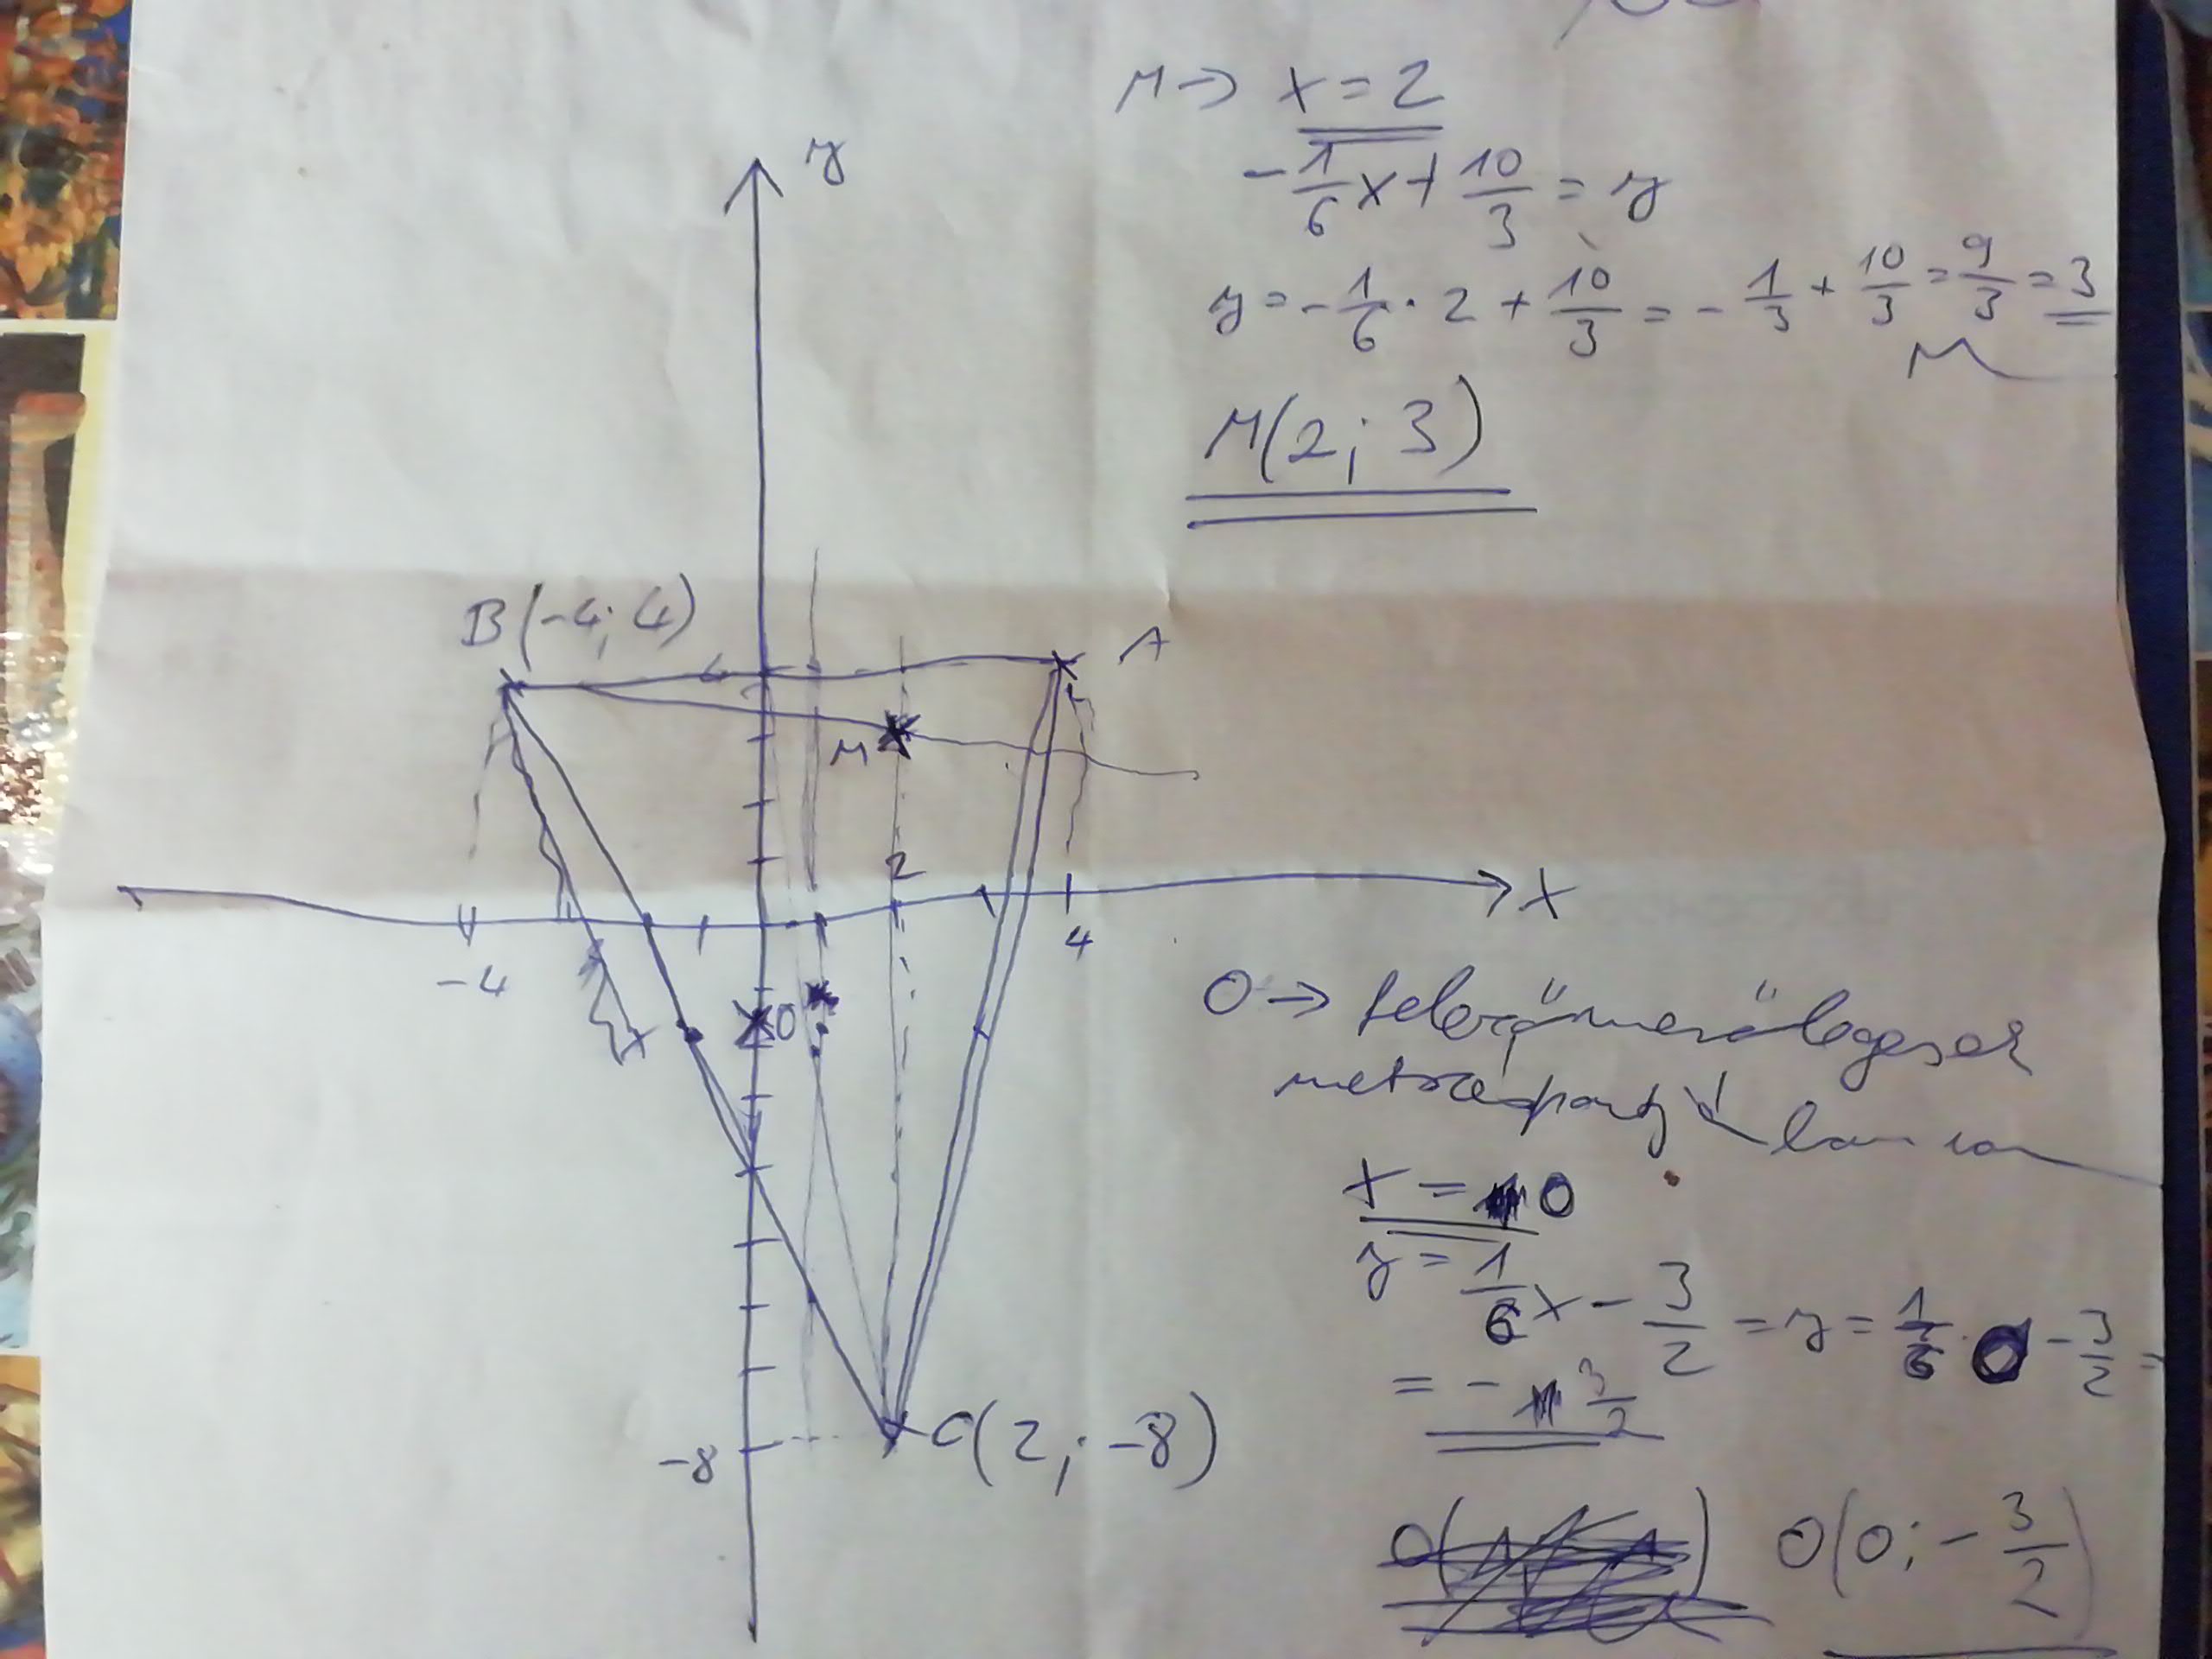 M → x = 2
-1/6 x + 10/3 = y
y = -1/6 · 2 + 10/3 = -1/3 + 10/3 = 9/3 = 3
M
M(2; 3)
y
B(-4; 4)
A
4
M
2
x
-4
4
O
-8
C(2; -8)
O → felezőmerőlegesek
metszéspontjában van
x = 0
y = 1/6 x - 3/2 = y = 1/6 · 0 - 3/2 =
= - 3/2
O(0; -3/2)